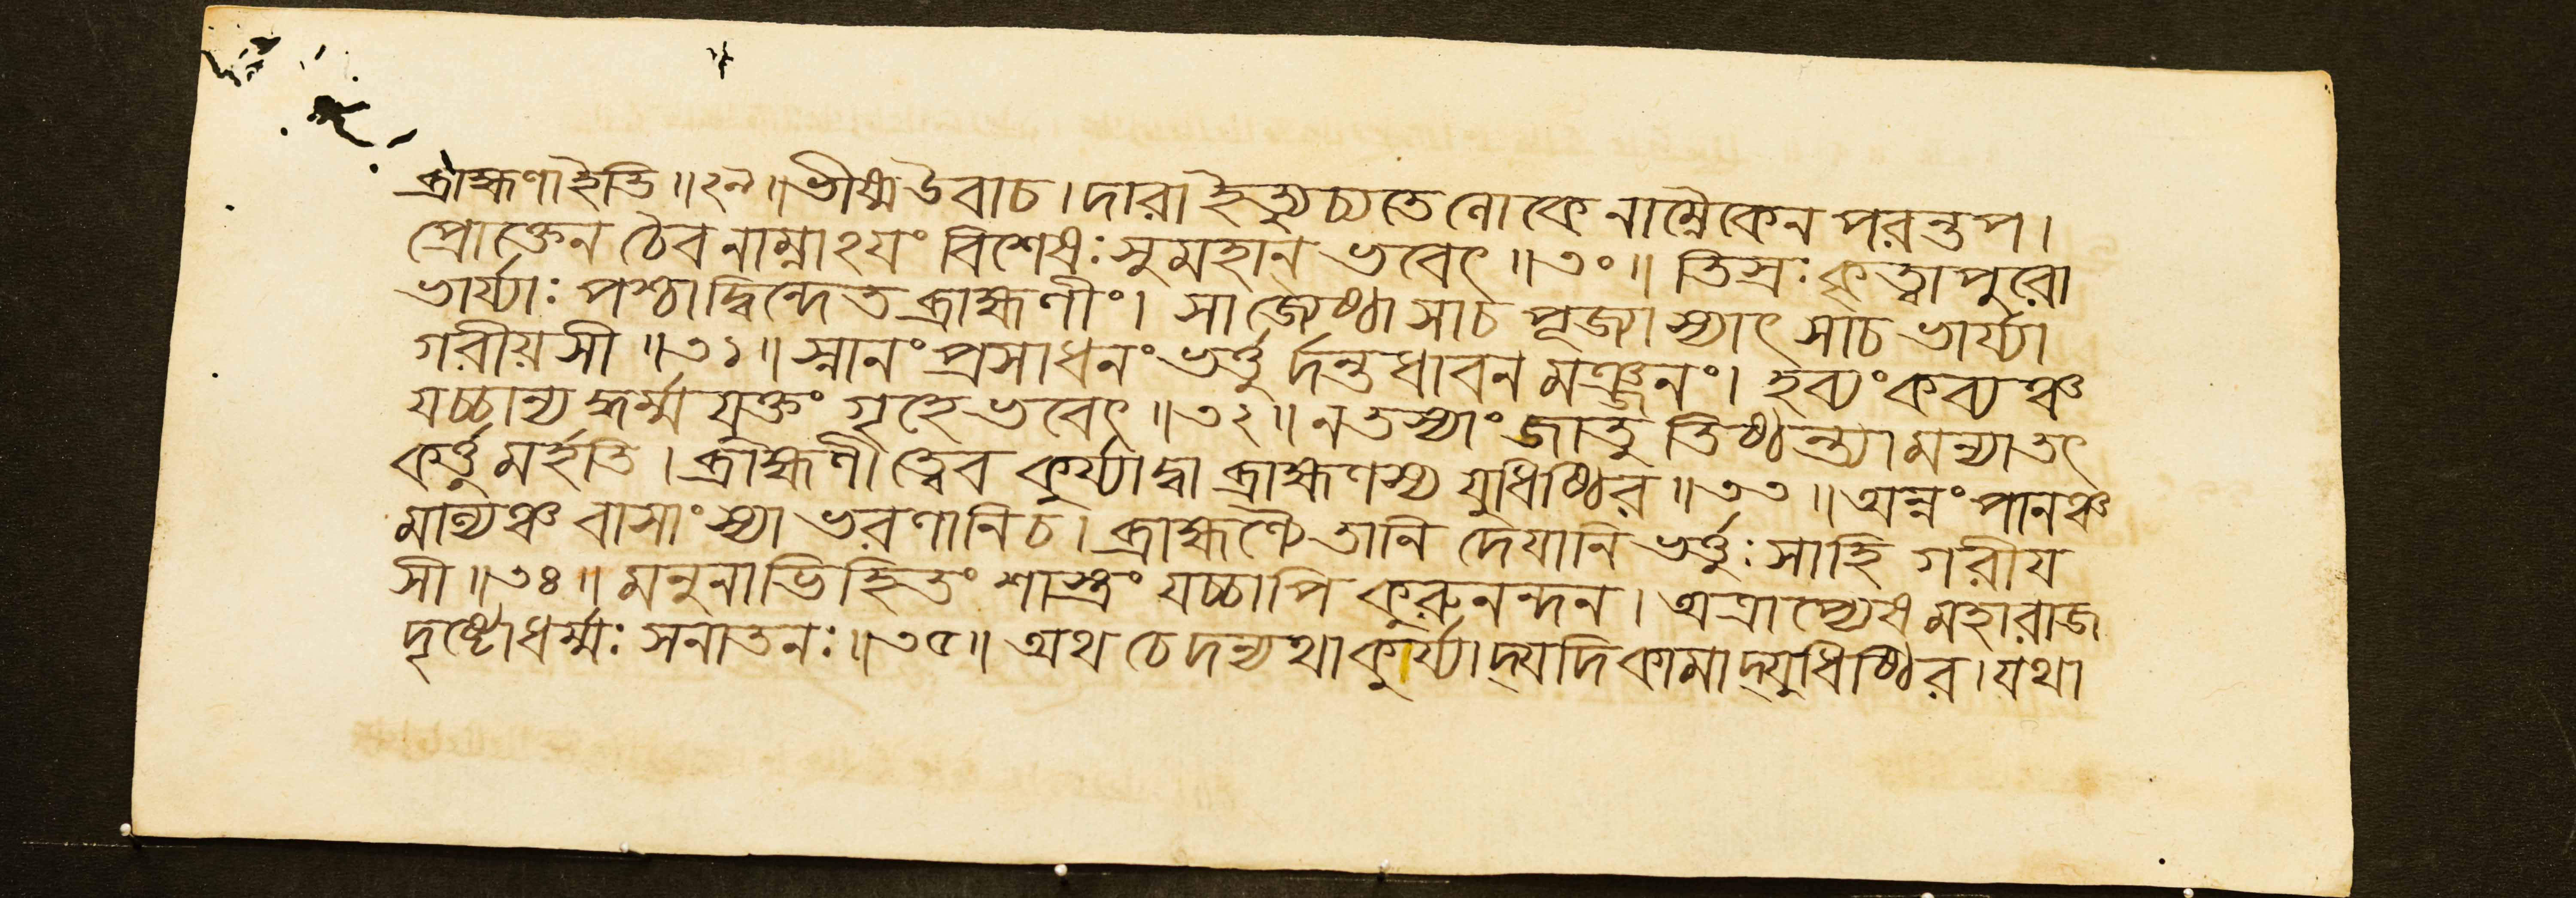 ব্রাহ্মণাইতি ॥২৯॥ ভীষ্মউবাচ । দারা ইত্যুচ্যতে লোকে নাম্নৈকেন পরন্তপ ।
প্রোক্তেন চৈব নাম্নাঽযং বিশেষঃ সুমহান্ ভবেৎ ॥৩০॥ তিস্রঃ কৃত্বা পুরো
ভার্য্যাঃ পশ্চাদ্বিন্দেত ব্রাহ্মণীং । সা জ্যেষ্ঠা সাচ পূজ্যা স্যাৎ সাচ ভার্য্যা
গরীয়সী ॥৩১॥ স্নানং প্রসাধনং ভর্ত্তু র্দন্তধাবন মঞ্জনং । হব্যং কব্যঞ্চ
যচ্চান্য দ্ধর্ম্ম যুক্তং গৃহে ভবেৎ ॥৩২॥ ন তস্যাং জাতু তিষ্ঠন্ত্যা মন্যা তৎ
কর্ত্তু মর্হতি । ব্রাহ্মণী ত্বেব কুর্য্যাদ্বা ব্রাহ্মণস্য যুধিষ্ঠির ॥৩৩॥ অন্নং পানঞ্চ
মাল্যঞ্চ বাসাংস্যা ভরণানিচ । ব্রাহ্মণ্যৈ তানি দেযানি ভর্ত্তুঃ সাহি গরীয
সী ॥৩৪॥ মনুনাভিহিতং শাস্ত্রং যচ্চাপি কুরুনন্দন । অত্রাপ্যেষ মহারাজ
দৃষ্টোধর্ম্মঃ সনাতনঃ ॥৩৫॥ অথ চেদন্যথা কুর্য্যাদ্যদি কামাদ্যুধিষ্ঠির । যথা